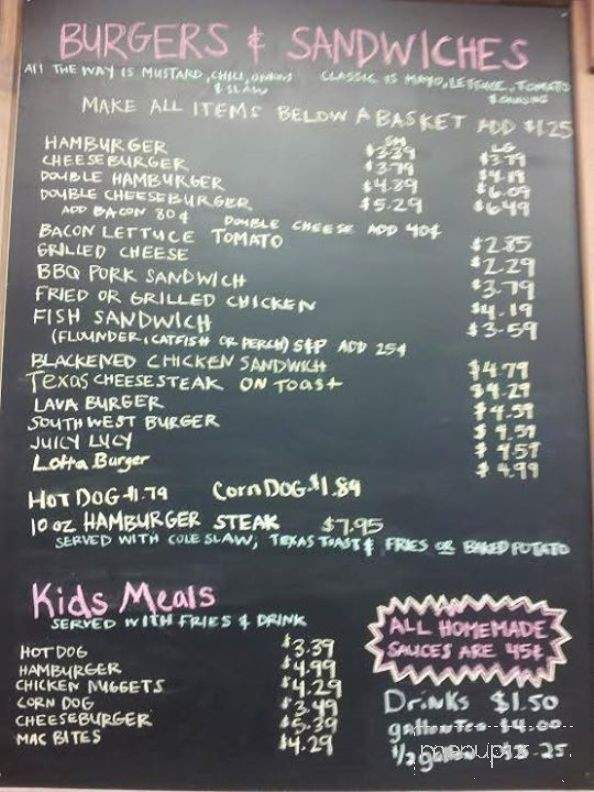 BURGERS & SANDWICHES
All THE WAY IS MUSTARD, CHILI, ONIONS & SLAW
CLASSIC IS MAYO, LETTUCE, TOMATO
MAKE ALL ITEMS BELOW A BASKET ADD $1.25
SM LG
HAMBURGER $3.39 $3.79
CHEESEBURGER $3.79 $4.19
DOUBLE HAMBURGER $4.89 $6.09
DOUBLE CHEESEBURGER $5.29 $6.49
ADD BACON 80¢ DOUBLE CHEESE ADD 40¢
BACON LETTUCE TOMATO $2.85
GRILLED CHEESE $2.29
BBQ PORK SANDWICH $3.79
FRIED OR GRILLED CHICKEN $4.19
FISH SANDWICH $3.59
(FLOUNDER, CATFISH OR PERCH) S&P ADD 25¢
BLACKENED CHICKEN SANDWICH $4.79
Texas CHEESESTEAK ON Toast $4.29
LAVA BURGER $4.59
SOUTHWEST BURGER $4.59
JUICY LUCY $4.59
Lotta Burger $4.99
HOT DOG $1.79 Corn DOG $1.89
10 oz HAMBURGER STEAK $7.95
SERVED WITH COLE SLAW, TEXAS TOAST & FRIES OR BAKED POTATO
Kids Meals
SERVED WITH FRIES & DRINK
HOT DOG $3.39
HAMBURGER $4.99
CHICKEN NUGGETS $4.29
CORN DOG $3.49
CHEESEBURGER $5.39
MAC BITES $4.29
ALL HOMEMADE
SAUCES ARE 45¢
Drinks $1.50
gallon Tea $4.00
1/2 gallon $3.25
menupix